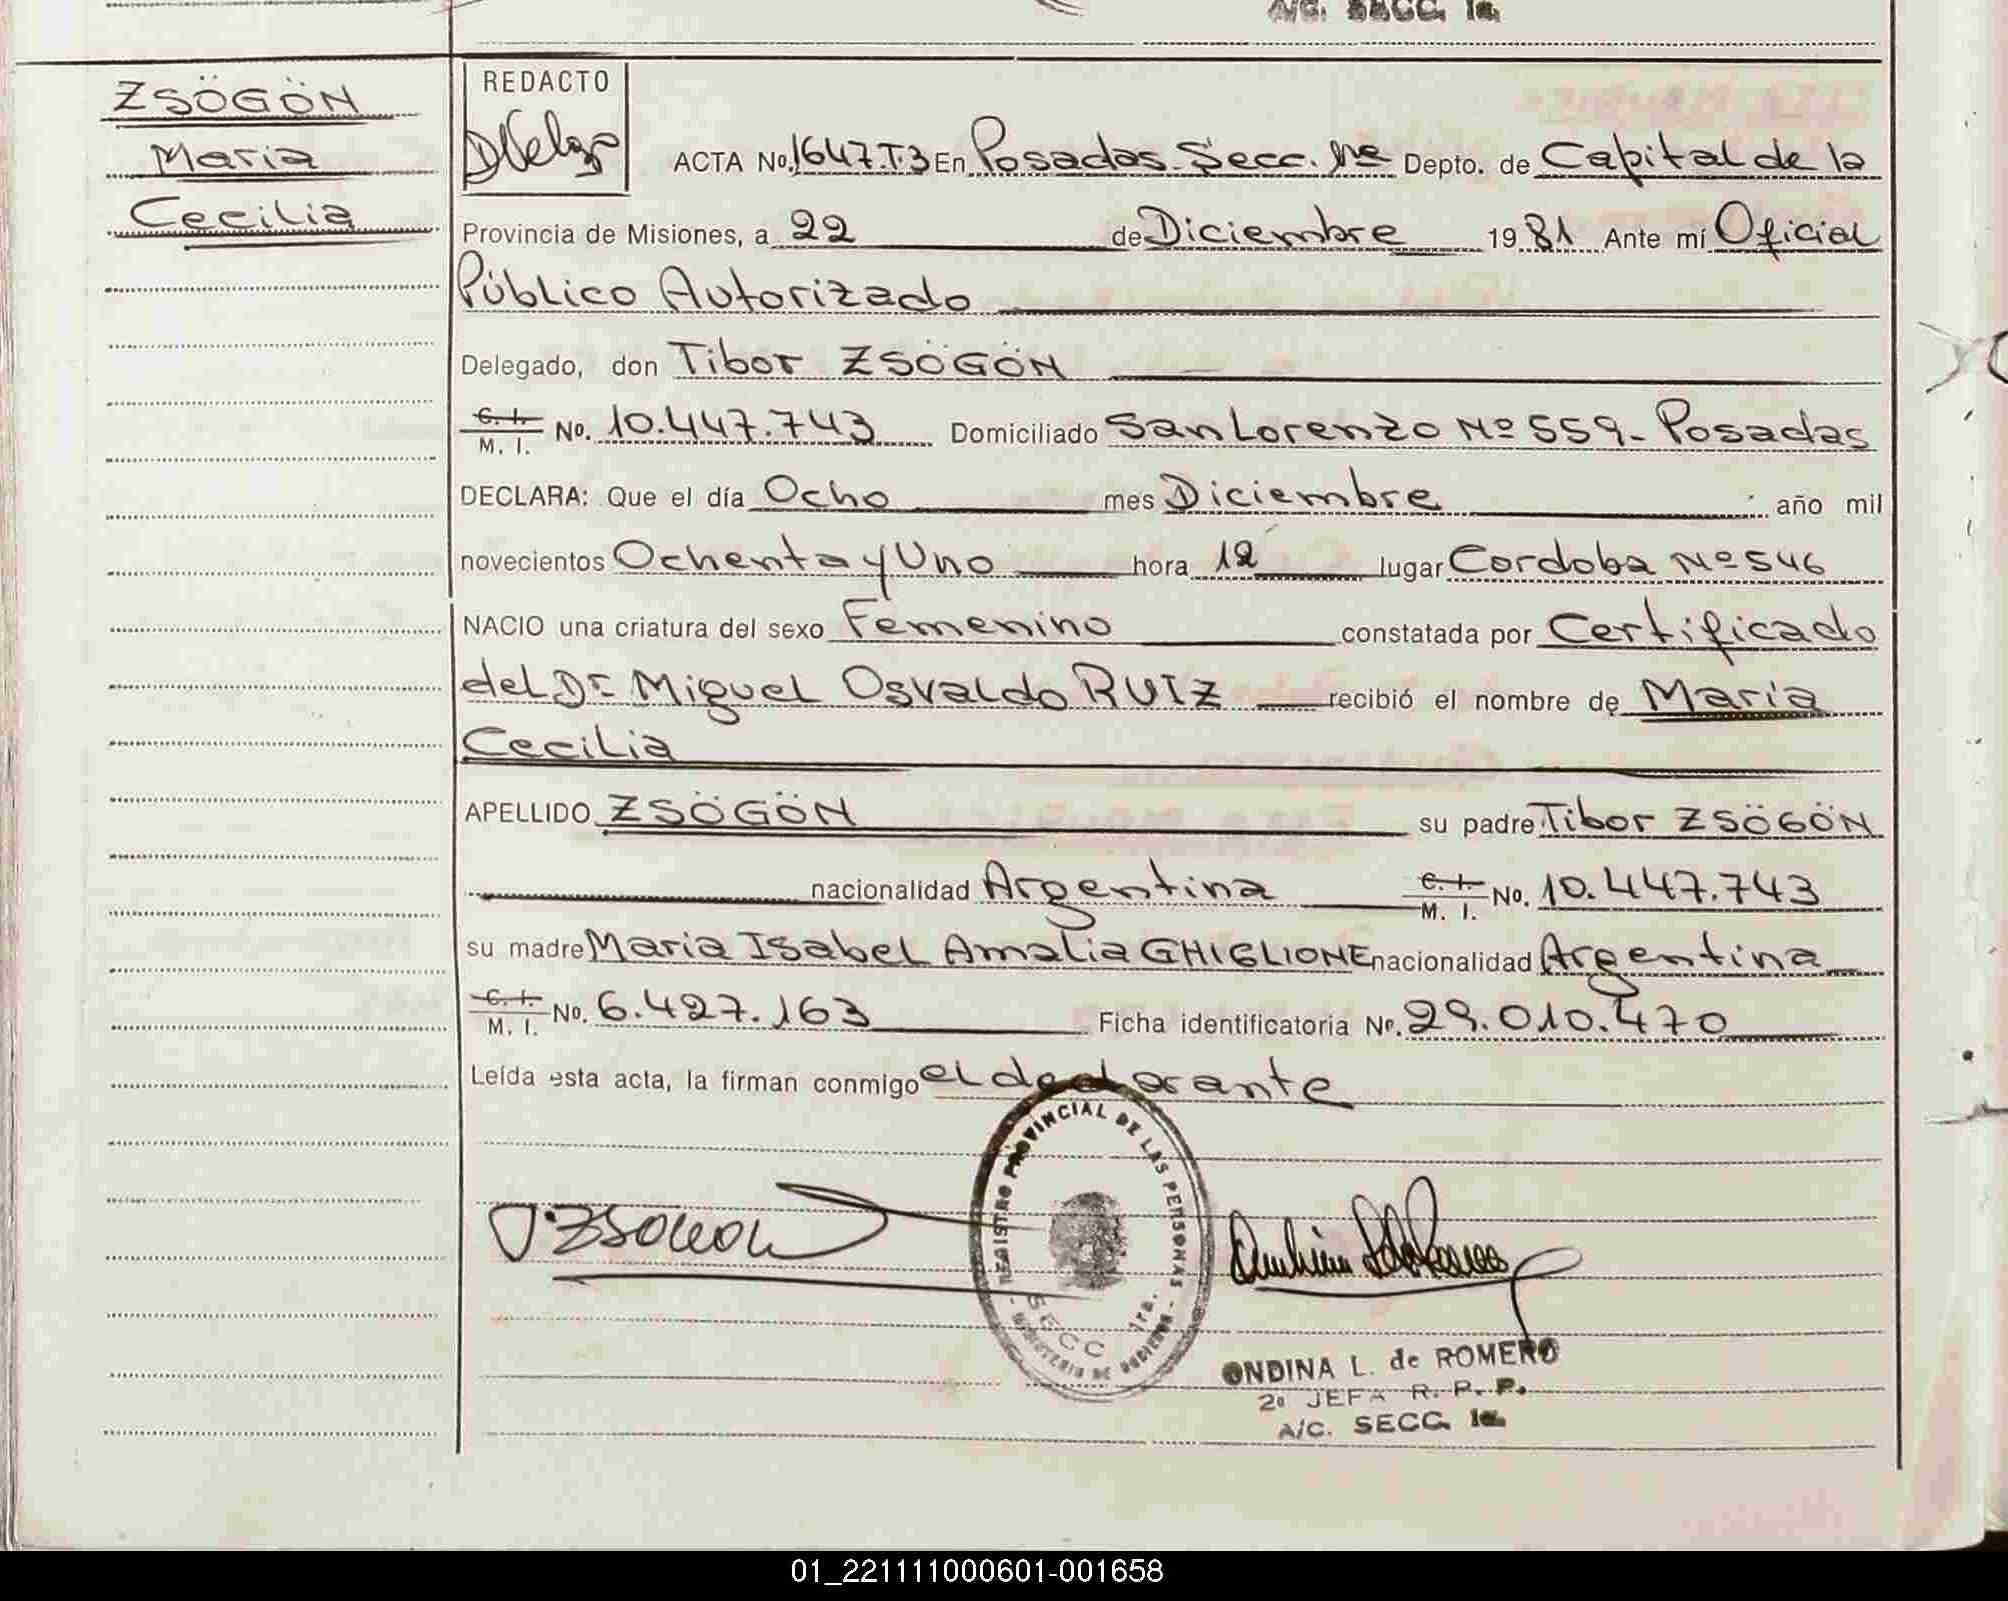 A/C. SECC. 1a.
ZSÖGÖN
Maria
Cecilia
REDACTO
ACTA No. 1647.T.3 En Posadas. Secc. 1ra Depto. de Capital de la
Provincia de Misiones, a 22 de Diciembre 1981 Ante mí Oficial
Público Autorizado
Delegado, don Tibor ZSÖGÖN
C. I.
M. I. No. 10.447.743 Domiciliado San Lorenzo Nº 559- Posadas
DECLARA: Que el día Ocho mes Diciembre año mil
novecientos Ochenta y Uno hora 12 lugar Cordoba Nº 546
NACIO una criatura del sexo Femenino constatada por Certificado
del Dr. Miguel Osvaldo RUIZ recibió el nombre de Maria
Cecilia
APELLIDO ZSÖGÖN su padre Tibor ZSÖGÖN
nacionalidad Argentina C. I.
M. I. No. 10.447.743
su madre Maria Isabel Amalia GHIGLIONE nacionalidad Argentina
C. I.
M. I. No. 6.427.163 Ficha identificatoria Nº. 29.010.470
Leída esta acta, la firman conmigo el declarante
REGISTRO PROVINCIAL DE LAS PERSONAS
SECC 1ra.
- MINISTERIO DE GOBIERNO -
T. ZSOGON
ONDINA L. de ROMERO
2a JEFA R. P. P.
A/C. SECC. 1a.
01_221111000601-001658